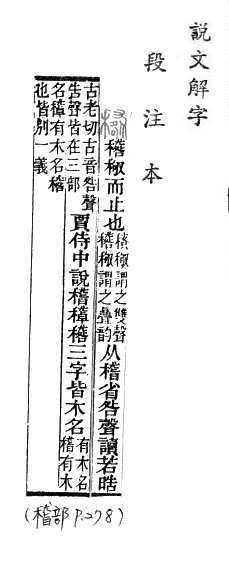 說文解字
段注本
而止也
謂之雙聲
謂之疊韵
从稽省咎聲讀若皓
古老切古音咎聲
告聲皆在三部
賈侍中說稽三字皆木名
有木名
稽有木
名有木名
也皆別一義
(稽部 P.278)